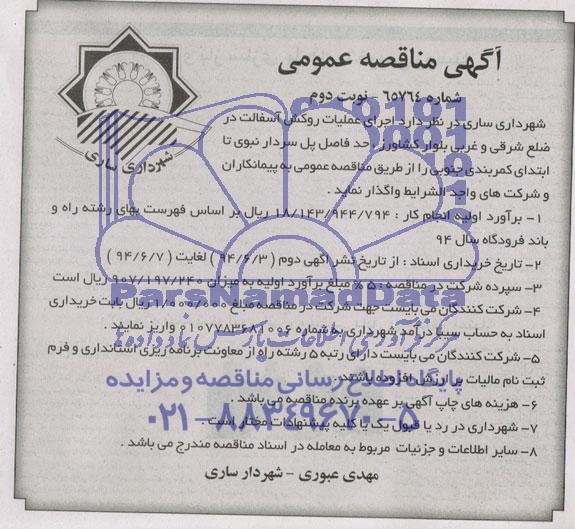 آگهی مناقصه عمومی
شماره ٦٥٧٦٤ - نوبت دوم
شهرداری ساری در نظر دارد اجرای عملیات روکش آسفالت در
ضلع شرقی و غربی بلوار کشاورز، حد فاصل پل سردار نبوی تا
ابتدای کمربندی جنوبی را از طریق مناقصه عمومی به پیمانکاران
و شرکت های واجد الشرایط واگذار نماید .
۱- برآورد اولیه انجام کار : ۱۸/۱۴۳/۹۴۴/۷۹۴ ریال بر اساس فهرست بهای رشته راه و
باند فرودگاه سال ۹۴
۲- تاریخ خریداری اسناد : از تاریخ نشر آگهی دوم ( ۹۴/۶/۳ ) لغایت ( ۹۴/۶/۷ )
۳- سپرده شرکت در مناقصه : ۵ % مبلغ برآورد اولیه به میزان ۹۰۷/۱۹۷/۲۴۰ ریال است
۴- شرکت کنندگان می بایست جهت شرکت در مناقصه مبلغ ۱/۰۰۰/۰۰۰ ریال بابت خریداری
اسناد به حساب سیبا درآمد شهرداری به شماره ۰۱۰۷۷۸۳۶۸۱۰۰۶ واریز نمایند .
۵- شرکت کنندگان می بایست دارای رتبه ۵ رشته راه از معاونت برنامه ریزی استانداری و فرم
ثبت نام مالیات بر ارزش افزوده باشند .
۶- هزینه های چاپ آگهی بر عهده برنده مناقصه می باشد .
۷- شهرداری در رد یا قبول یک یا کلیه پیشنهادات مختار است .
۸- سایر اطلاعات و جزئیات مربوط به معامله در اسناد مناقصه مندرج می باشد .
مهدی عبوری - شهردار ساری
شهرداری ساری
ParsNamadData
مرکز فرآوری اطلاعات پارس نماد داده ها
پایگاه اطلاع رسانی مناقصه و مزایده
۰۲۱-۸۸۳۴۹۶۷۰-۵